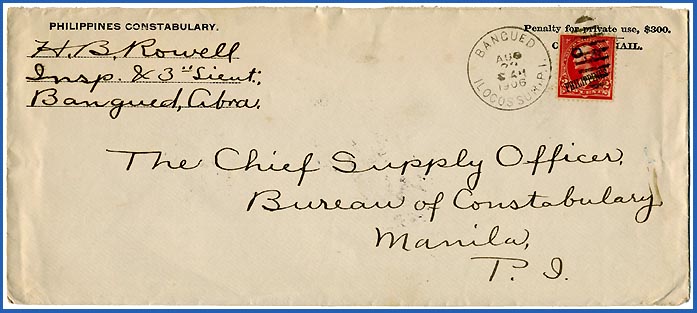 PHILIPPINES CONSTABULARY.
H. B. Rowell
Insp. & 3rd Lieut.,
Bangued, Abra.
Penalty for private use, $300.
MAIL.
BANGUED
AUG
1906
ILOCOS SUR, P.I.
PHILIPPINES
The Chief Supply Officer,
Bureau of Constabulary
Manila,
P. I.